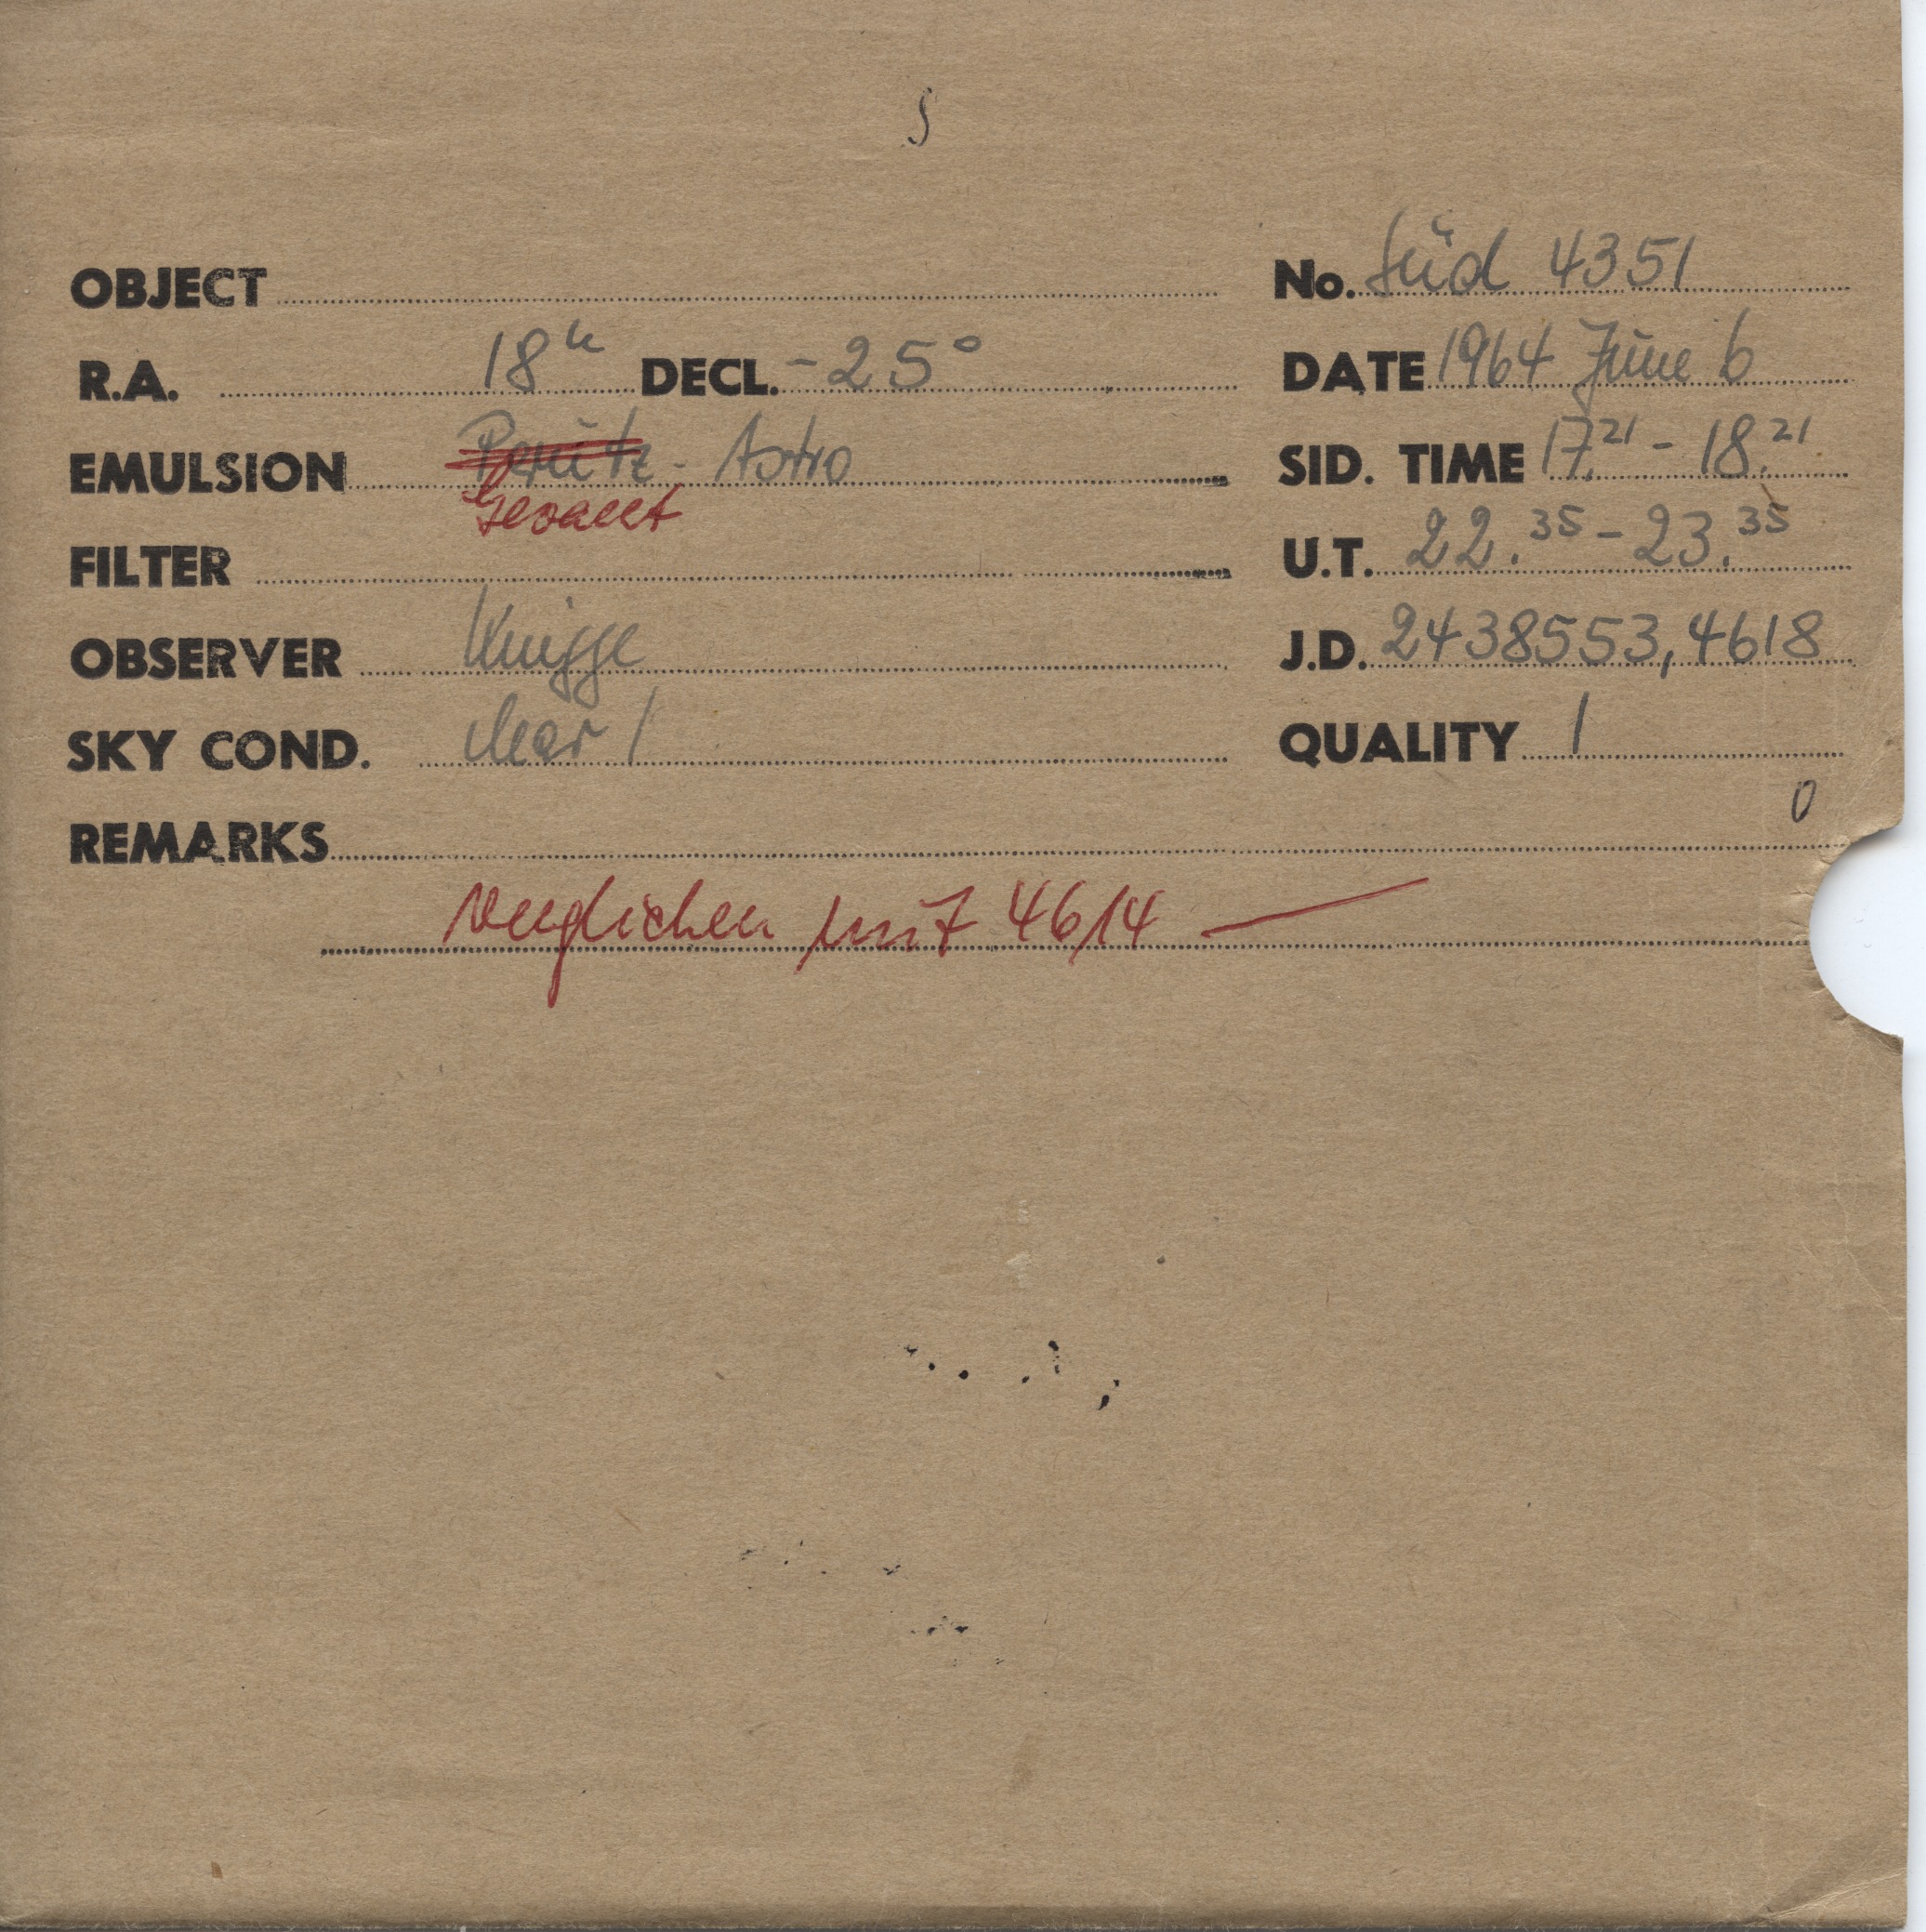 S
OBJECT No. Süd 4351
R.A. 18h DECL. -25° DATE 1964 June 6
EMULSION Perutz - Astro SID. TIME 17.21 - 18.21
Gevaert
FILTER U.T. 22.35 - 23.35
OBSERVER Knigge J.D. 2438553,4618
SKY COND. clear 1 QUALITY 1
0
REMARKS
verglichen mit 4614 —